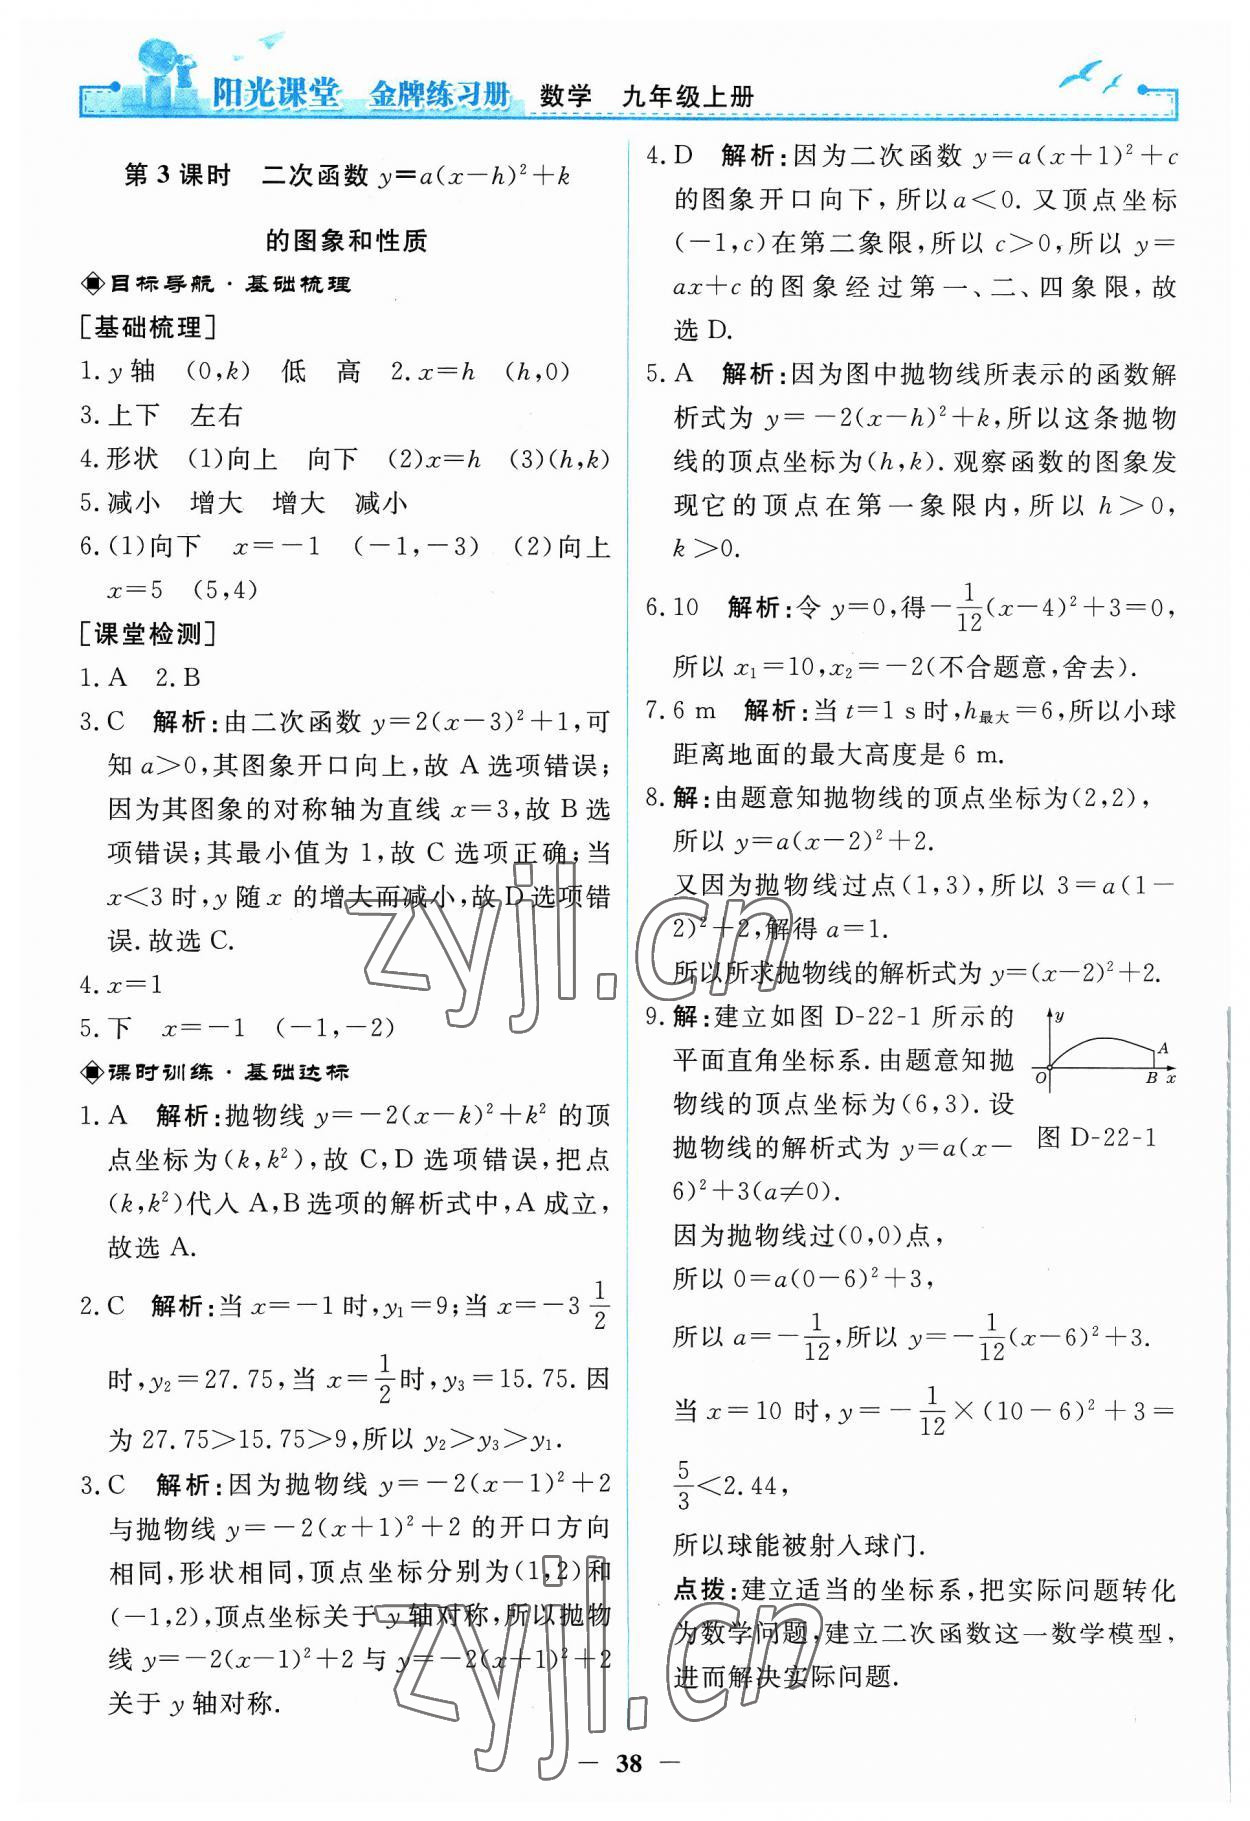 阳光课堂 金牌练习册 数学 九年级上册
第3课时 二次函数 y=a(x-h)²+k
的图象和性质
目标导航·基础梳理
[基础梳理]
1. y轴 (0,k) 低 高 2. x=h (h,0)
3. 上下 左右
4. 形状 (1)向上 向下 (2)x=h (3)(h,k)
5. 减小 增大 增大 减小
6. (1)向下 x=-1 (-1,-3) (2)向上
x=5 (5,4)
[课堂检测]
1. A 2. B
3. C 解析:由二次函数 y=2(x-3)²+1,可
知 a>0,其图象开口向上,故 A 选项错误;
因为其图象的对称轴为直线 x=3,故 B 选
项错误;其最小值为 1,故 C 选项正确;当
x<3 时,y 随 x 的增大而减小,故 D 选项错
误.故选 C.
4. x=1
5. 下 x=-1 (-1,-2)
课时训练·基础达标
1. A 解析:抛物线 y=-2(x-k)²+k² 的顶
点坐标为(k,k²),故 C,D 选项错误,把点
(k,k²)代人 A,B 选项的解析式中,A 成立,
故选 A.
2. C 解析:当 x=-1 时,y₁=9;当 x=-3 1/2
时,y₂=27.75,当 x=1/2时,y₃=15.75.因
为 27.75>15.75>9,所以 y₂>y₃>y₁.
3. C 解析:因为抛物线 y=-2(x-1)²+2
与抛物线 y=-2(x+1)²+2 的开口方向
相同,形状相同,顶点坐标分别为(1,2)和
(-1,2),顶点坐标关于 y 轴对称,所以抛物
线 y=-2(x-1)²+2 与 y=-2(x+1)²+2
关于 y 轴对称.
4. D 解析:因为二次函数 y=a(x+1)²+c
的图象开口向下,所以 a<0.又顶点坐标
(-1,c)在第二象限,所以 c>0,所以 y=
ax+c 的图象经过第一、二、四象限,故
选 D.
5. A 解析:因为图中抛物线所表示的函数解
析式为 y=-2(x-h)²+k,所以这条抛物
线的顶点坐标为(h,k).观察函数的图象发
现它的顶点在第一象限内,所以 h>0,
k>0.
6. 10 解析:令 y=0,得-1/12(x-4)²+3=0,
所以 x₁=10,x₂=-2(不合题意,舍去).
7. 6 m 解析:当 t=1 s 时,h最大=6,所以小球
距离地面的最大高度是 6 m.
8. 解:由题意知抛物线的顶点坐标为(2,2),
所以 y=a(x-2)²+2.
又因为抛物线过点(1,3),所以 3=a(1-
2)²+2,解得 a=1.
所以所求抛物线的解析式为 y=(x-2)²+2.
9. 解:建立如图 D-22-1 所示的
平面直角坐标系.由题意知抛
物线的顶点坐标为(6,3).设
抛物线的解析式为 y=a(x-
6)²+3(a≠0).
y
A
O B x
图 D-22-1
因为抛物线过(0,0)点,
所以 0=a(0-6)²+3,
所以 a=-1/12,所以 y=-1/12(x-6)²+3.
当 x=10 时,y=-1/12×(10-6)²+3=
5/3<2.44,
所以球能被射入球门.
点拨:建立适当的坐标系,把实际问题转化
为数学问题,建立二次函数这一数学模型,
进而解决实际问题.
zyjl.cn
zyjl.cn
— 38 —